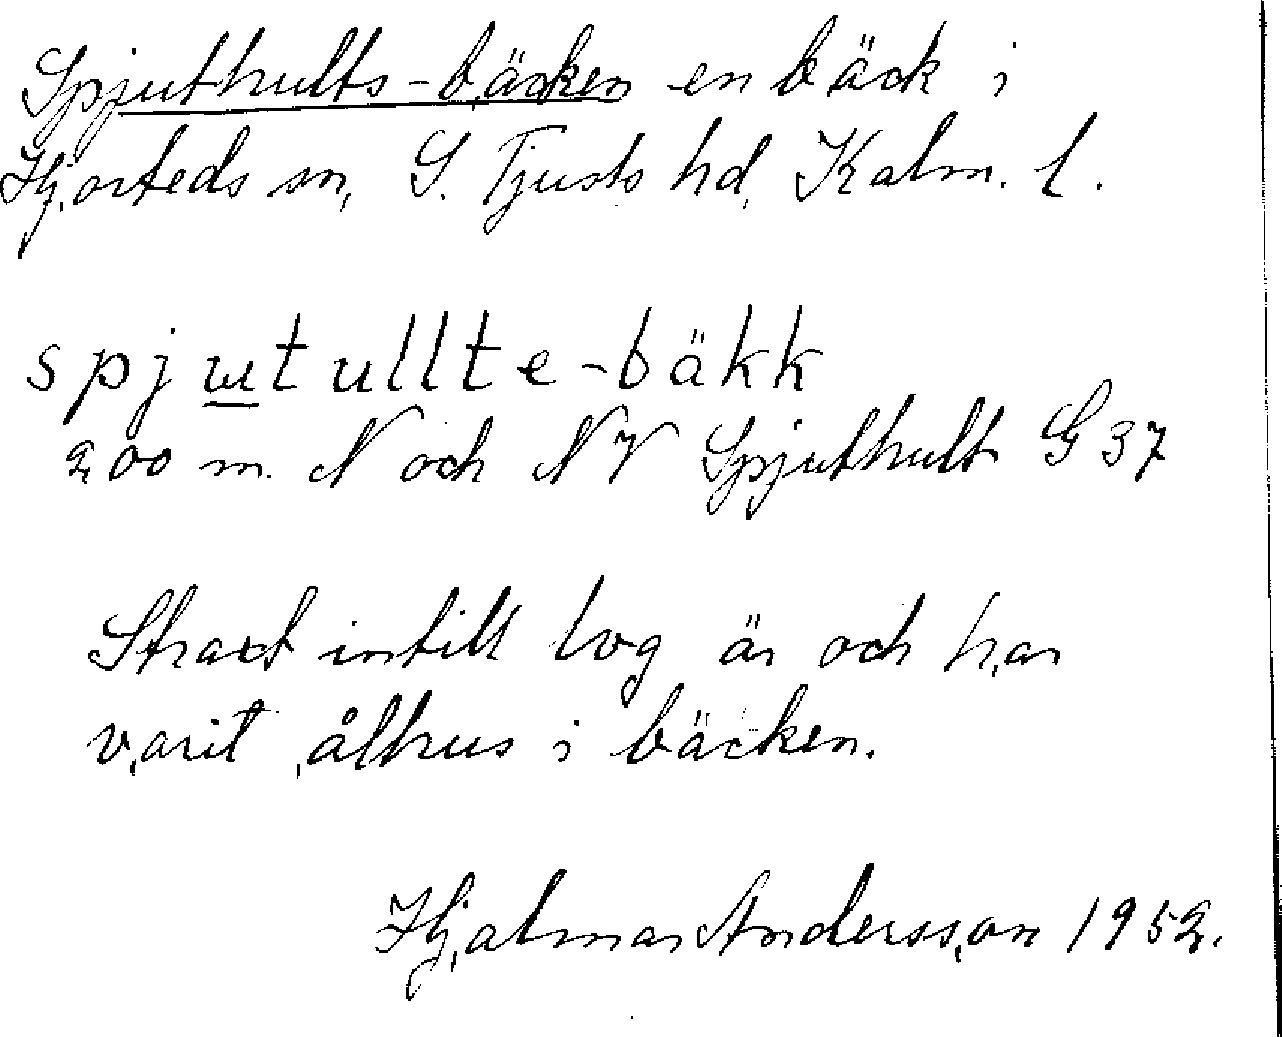 Spjuthults-bäcken en bäck i
Hjorteds sn, S. Tjusts hd, Kalm. l.
spjutullte-bäkk
200 m. N och NV Spjuthult G 37
Straxt intill lvg är och har
varit ålhus i bäcken.
Hjalmar Andersson 1952.